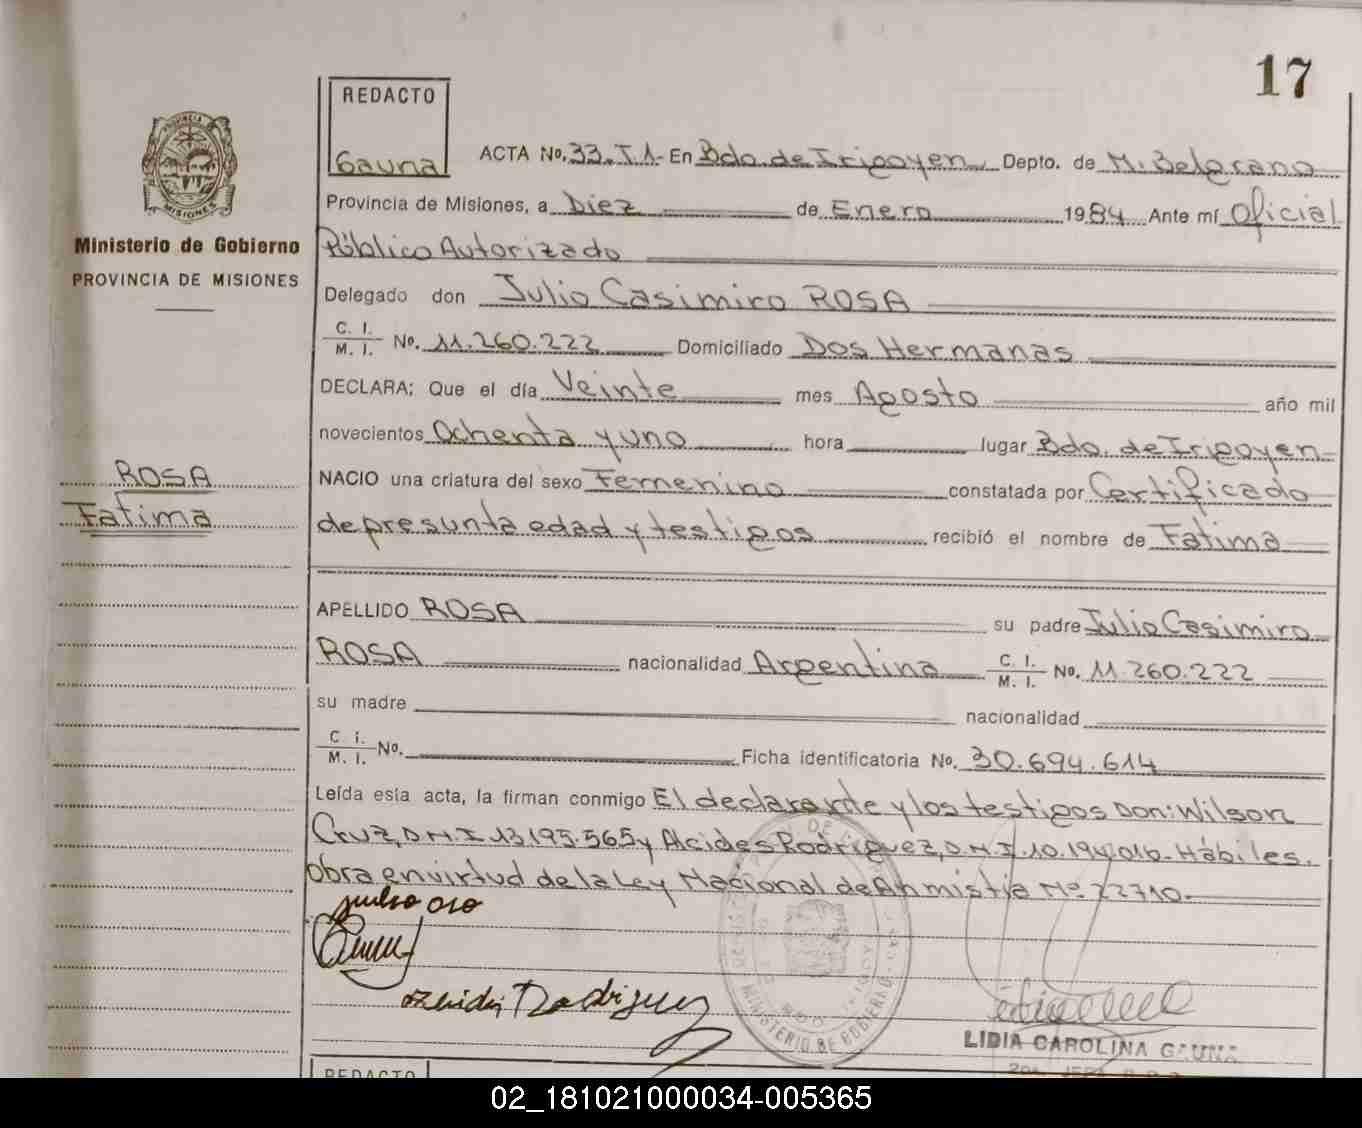 17
REDACTO
Gauna
ACTA No. 33. T 1. En Bdo. de Irigoyen Depto. de M. Belgrano
Provincia de Misiones, a Diez de Enero 1984 Ante mí Oficial
Ministerio de Gobierno
PROVINCIA DE MISIONES
Público Autorizado
Delegado don Julio Casimiro ROSA
C. I.
M. I. No. 11.260.222 Domiciliado Dos Hermanas
DECLARA; Que el día Veinte mes Agosto año mil
novecientos Ochenta y uno hora lugar Bdo. de Irigoyen
ROSA
Fatima
NACIO una criatura del sexo Femenino constatada por Certificado
de presunta edad y testigos recibió el nombre de Fatima
APELLIDO ROSA su padre Julio Casimiro
ROSA nacionalidad Argentina C. I.
M. I. No. 11.260.222
su madre nacionalidad
C. I.
M. I. No. Ficha identificatoria No. 30.694.614
Leída esta acta, la firman conmigo El declarante y los testigos Don: Wilson
Cruz, D.N.I 13.195.565 y Alcides Rodriguez, D.N.I. 10.194.016 - Hábiles.
Obra en virtud de la Ley Nacional de Anmistia Nº 22710-
Rodriguez
MINISTERIO DE GOBIERNO
LIDIA CAROLINA GAUNA
REDACTO
02_181021000034-005365